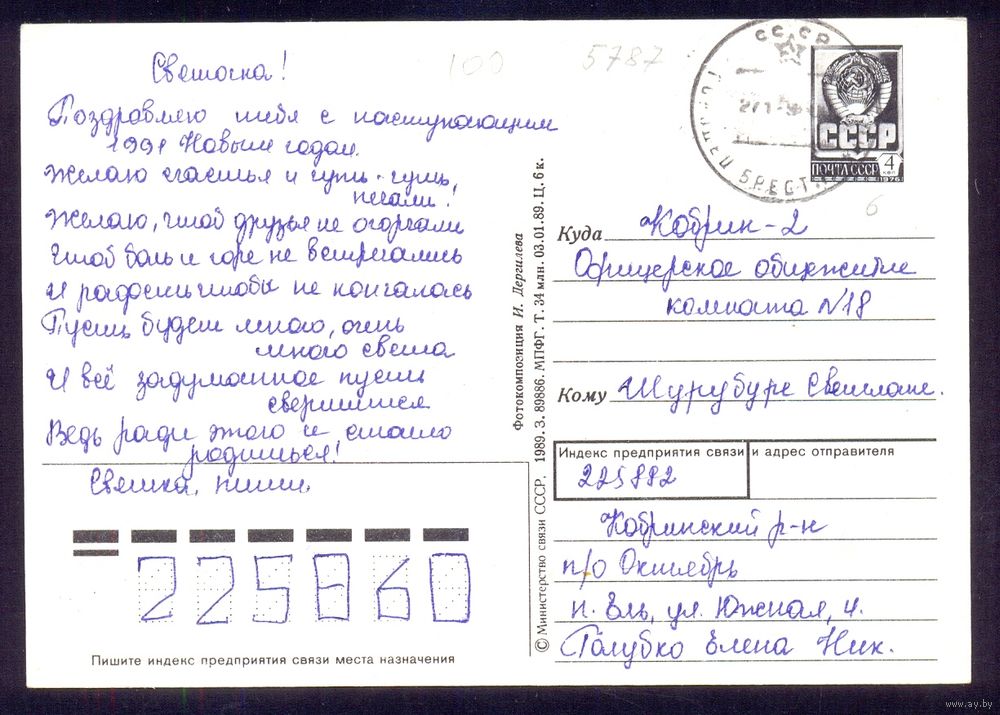 Светоска!
Поздравляю тебя с наступающим
1991 Новым годом.
Желаю счастья и чуть-чуть
печали!
Желаю, чтоб друзья не огорчали
Чтоб боль и горе не встречались
И радость чтобы не кончалась
Пусть будет много, очень
много света
И всё задуманное пусть
свершится
Ведь ради этого и стало
родиться!
Светка, пиши.
225860
Пишите индекс предприятия связи места назначения
© Министерство связи СССР. 1989. З. 89886. МПФГ. Т. 34 млн. 03.01.89. Ц. 6 к.
Фотокомпозиция И. Дергилева
100
5787
СССР
БРЕСТ
СССР
ПОЧТА СССР 4 коп
1976
6
Куда Кобрин-2
Офицерское общежитие
комната N18
Кому Шурубуре Светлане.
Индекс предприятия связи и адрес отправителя
225882
Кобринский р-н
п/о Октябрь
п. Ель, ул. Южная, 4.
Голубко Елена Ник.
www.ay.by